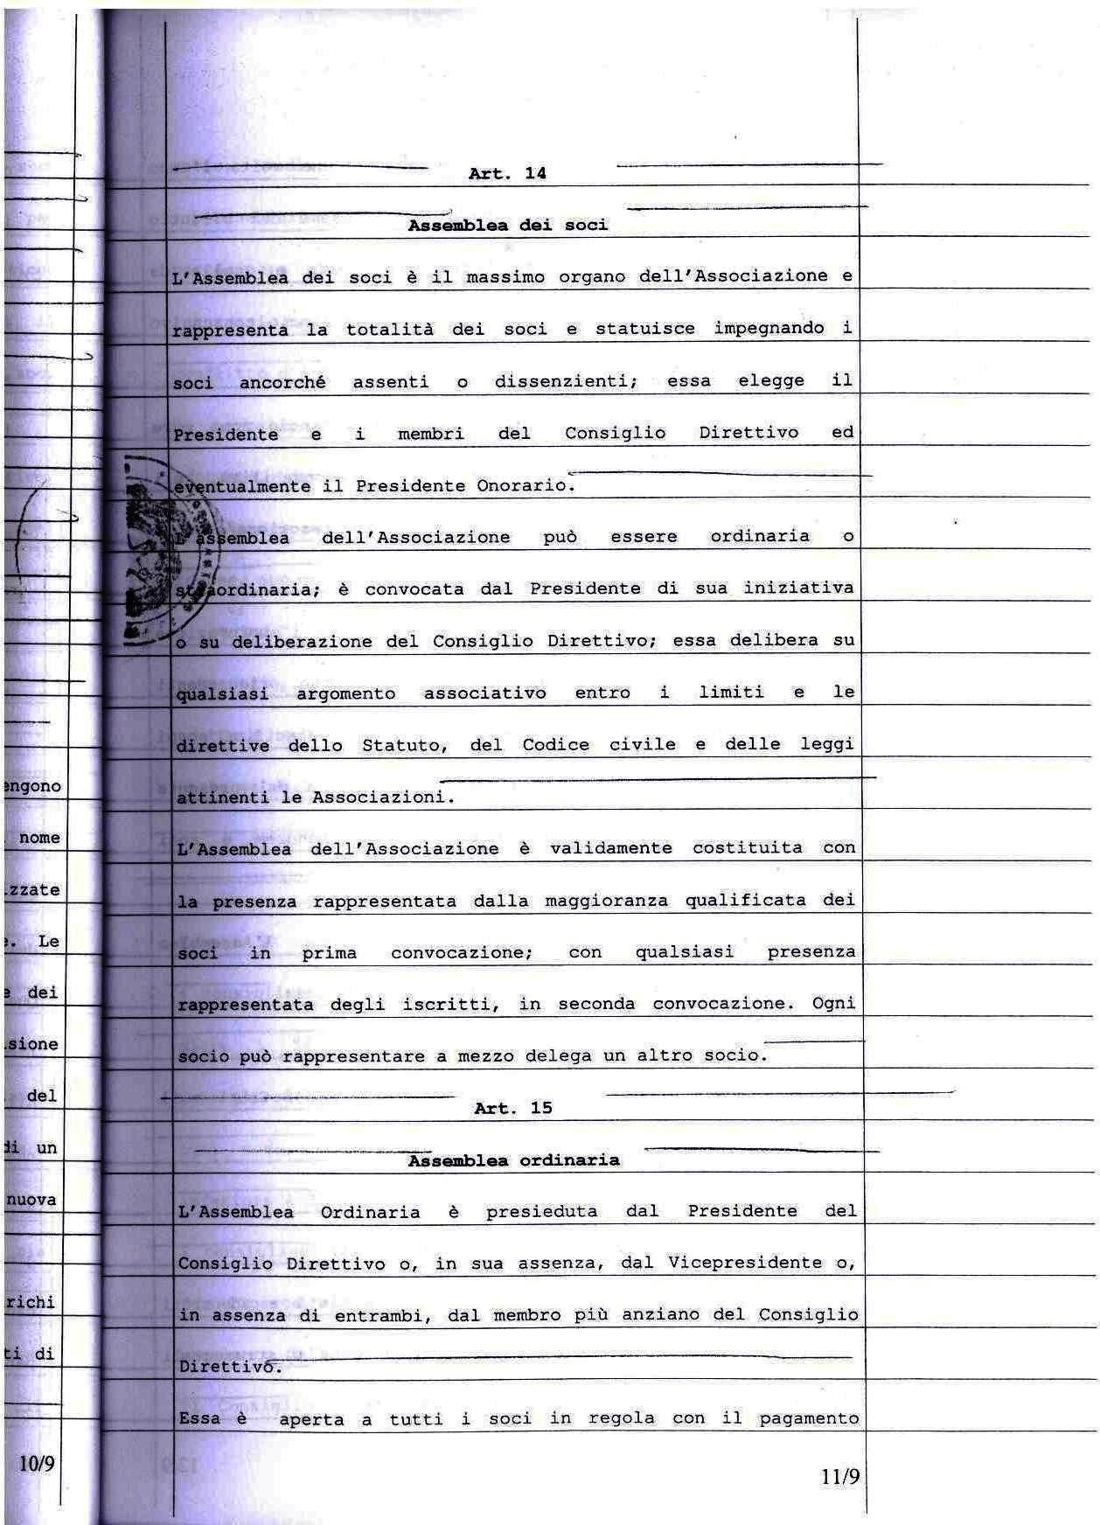 engono
nome
zzate
. Le
e dei
sione
del
di un
nuova
richi
ti di
10/9
Art. 14
Assemblea dei soci
L'Assemblea dei soci è il massimo organo dell'Associazione e
rappresenta la totalità dei soci e statuisce impegnando i
soci ancorché assenti o dissenzienti; essa elegge il
Presidente e i membri del Consiglio Direttivo ed
eventualmente il Presidente Onorario.
L'assemblea dell'Associazione può essere ordinaria o
straordinaria; è convocata dal Presidente di sua iniziativa
o su deliberazione del Consiglio Direttivo; essa delibera su
qualsiasi argomento associativo entro i limiti e le
direttive dello Statuto, del Codice civile e delle leggi
attinenti le Associazioni.
L'Assemblea dell'Associazione è validamente costituita con
la presenza rappresentata dalla maggioranza qualificata dei
soci in prima convocazione; con qualsiasi presenza
rappresentata degli iscritti, in seconda convocazione. Ogni
socio può rappresentare a mezzo delega un altro socio.
Art. 15
Assemblea ordinaria
L'Assemblea Ordinaria è presieduta dal Presidente del
Consiglio Direttivo o, in sua assenza, dal Vicepresidente o,
in assenza di entrambi, dal membro più anziano del Consiglio
Direttivo.
Essa è aperta a tutti i soci in regola con il pagamento
11/9